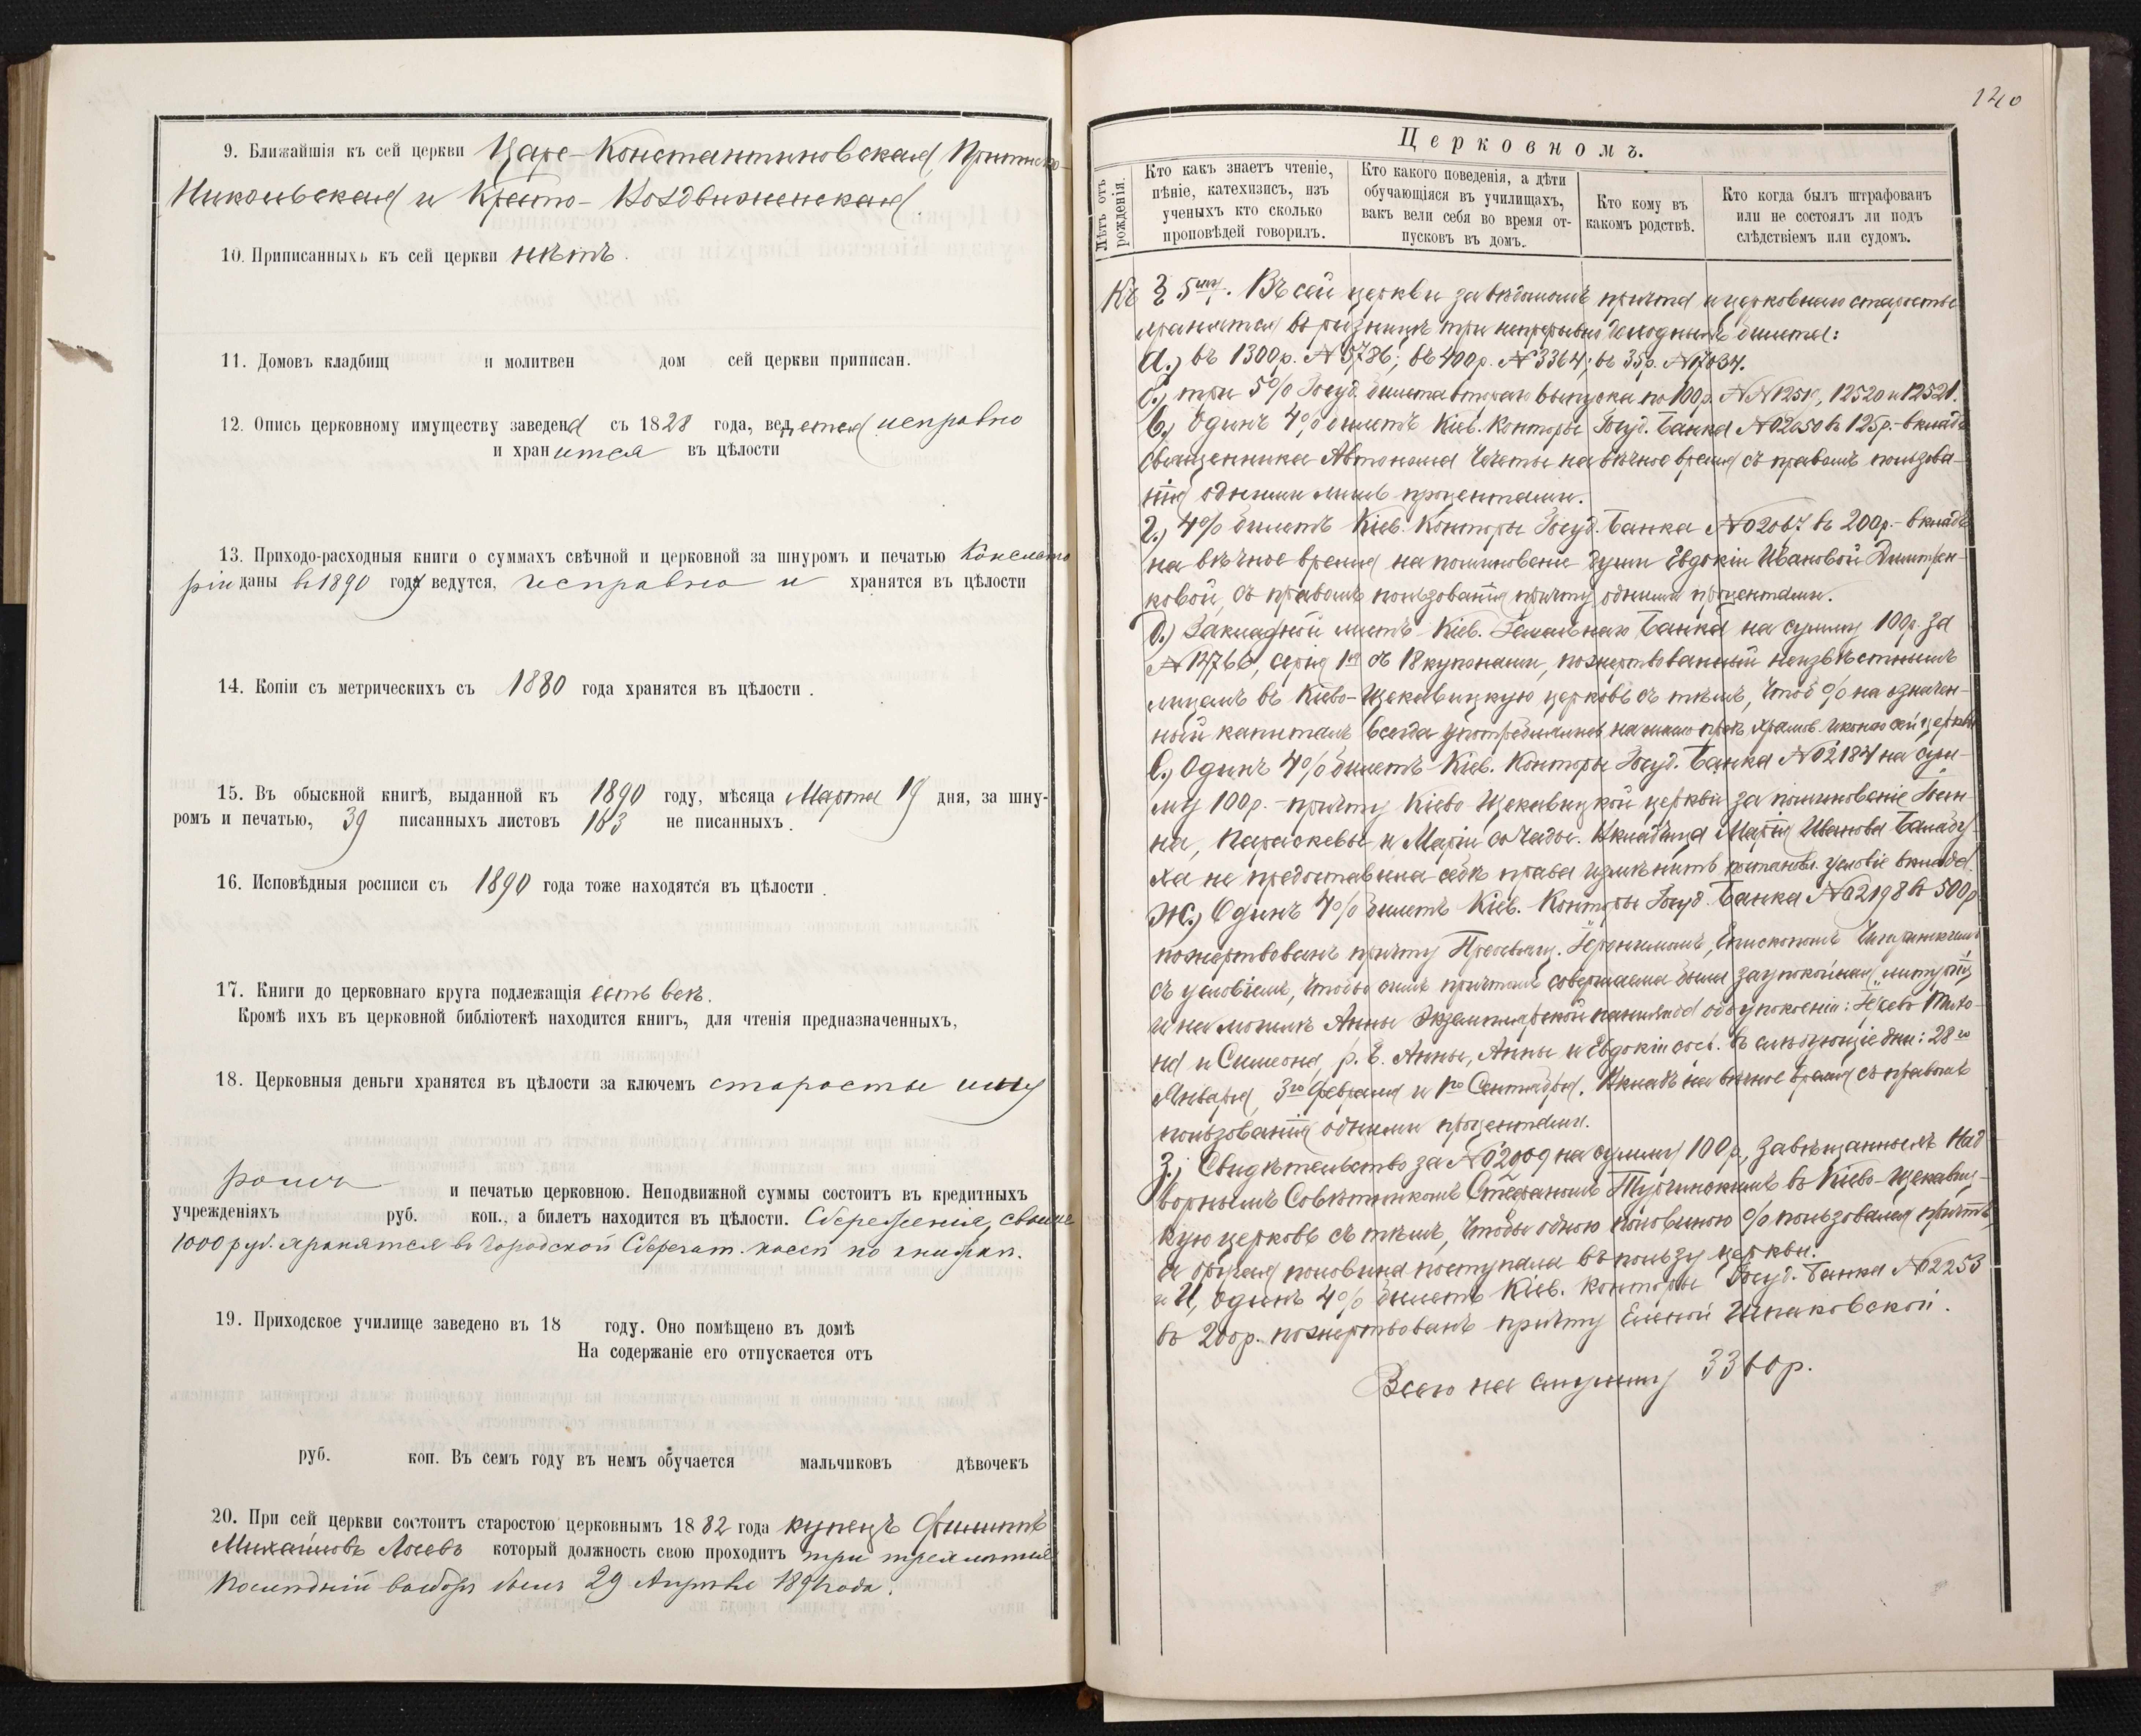 9. Ближайшія къ сей церкви Царе-Константиновская, Притиско-
Николаевская и Кресто-Воздвиженская.
10. Приписанныхъ къ сей церкви нѣтъ.
11. Домовъ кладбищ и молитвен дом сей церкви приписан.
12. Опись церковному имуществу заведена съ 1828 года, ведется исправно
и хранится въ цѣлости
13. Приходо-расходныя книги о суммахъ свѣчной и церковной за шнуромъ и печатью Консисто
ріи даны въ 1890 году ведутся, исправно и хранятся въ цѣлости
14. Копіи съ метрическихъ съ 1880 года хранятся въ цѣлости.
15. Въ обыскной книгѣ, выданной къ 1890 году, мѣсяца Марта 19 дня, за шну-
ромъ и печатью, 39 писанныхъ листовъ 163 не писанныхъ.
16. Исповѣдныя росписи съ 1890 года тоже находятся въ цѣлости.
17. Книги до церковнаго круга подлежащія есть всѣ.
Кромѣ ихъ въ церковной библіотекѣ находится книгъ, для чтенія предназначенныхъ,
18. Церковныя деньги хранятся въ цѣлости за ключемъ старосты
и печатью церковною. Неподвижной суммы состоитъ въ кредитныхъ
учрежденіяхъ руб. коп., а билетъ находится въ цѣлости. Сбереженія, свыше
1000 руб. хранятся въ Городской Сберегат. кассѣ по книжкѣ.
19. Приходское училище заведено въ 18 году. Оно помѣщено въ домѣ
На содержаніе его отпускается отъ
руб. коп. Въ семъ году въ немъ обучается мальчиковъ дѣвочекъ
20. При сей церкви состоитъ старостою церковнымъ 1882 года купецъ Филиппъ
Михайловъ Лосевъ который должность свою проходитъ три трехлѣтія
Послѣдній выборъ былъ 29 Апрѣля 1891 года.
120
Церковномъ.
Лѣтъ отъ рожденія.
Кто какъ знаетъ чтеніе, пѣніе, катехизисъ, изъ ученыхъ кто сколько проповѣдей говорилъ.
Кто какого поведенія, а дѣти обучающіяся въ училищахъ, какъ вели себя во время от-пусковъ въ домъ.
Кто кому въ какомъ родствѣ.
Кто когда былъ штрафованъ или не состоялъ ли подъ слѣдствіемъ или судомъ.
Въ сей церкви за вѣдомомъ причта и церковнаго старосты
хранятся въ ризницѣ три непрерывно доходныхъ билета:
а.) въ 1300р. № 5786; въ 400р. № 3364; въ 35р.
б.) три 5% Госуд. билета втораго выпуска по 100р. 12520 и 12521.
в.) Одинъ 4% билетъ Кіев. Конторы Госуд. Банка въ 125р. - вкладъ
священника Автонома на вѣчное время съ правомъ пользова-
нія одними лишь процентами.
г.) 4% билетъ Кіев. Конторы Госуд. Банка № 02067 въ 200р. - вкладъ
на вѣчное время на поминовеніе души Евдокіи Ивановой Дмитрен-
ковой, съ правомъ пользованія причту одними процентами.
д.) Закладной листъ Кіев. Земельнаго Банка на сумму 100р. за
серія 1я съ 18 купонами, пожертвованный неизвѣстнымъ
лицомъ въ Кіево-Щекавицкую церковь съ тѣмъ, чтоб % на означен-
ный капиталъ всегда употреблялись на масло предъ храмов. иконою сей церкви
е.) Одинъ 4% билетъ Кіев. Конторы Госуд. Банка № 02184 на сум-
му 100р. - причту Кіево Щекавицкой церкви за поминовеніе
Параскевы и Маріи со чады. Вкладчица Марія Иванова
не предоставила себѣ права измѣнить постановл. условіе вклада.
ж.) Одинъ 4% билетъ Кіев. Конторы Госуд. Банка № 02198 въ 500р.
пожертвованъ причту Преосвящ. Іеронимомъ, Епископомъ Чигиринскимъ
съ условіемъ, чтобы симъ причтомъ совершаема была заупокойная литургія
и на могилѣ Анны Экземплярской панихида объ упокоеніи:
и Симеона, р. Б. Анны, Анны и Евдокіи въ слѣдующіе дни: 28го
Января, 3го Февраля и Сентября. Вкладъ на вѣчное время съ правомъ
пользованія одними процентами.
з.) Свидѣтельство за № 02009 на сумму 100р., завѣщанныхъ Над
ворнымъ Совѣтникомъ Стефаномъ въ Кіево-Щекавиц-
кую церковь съ тѣмъ, чтобы одною половиною % пользовался причтъ,
а другая половина поступала въ пользу церкви.
и И, Одинъ 4% билетъ Кіев. Конторы Госуд. Банка № 02253
въ 200р. пожертвованъ причту Еленой Шпаковской.
Всего на сумму 3360р.